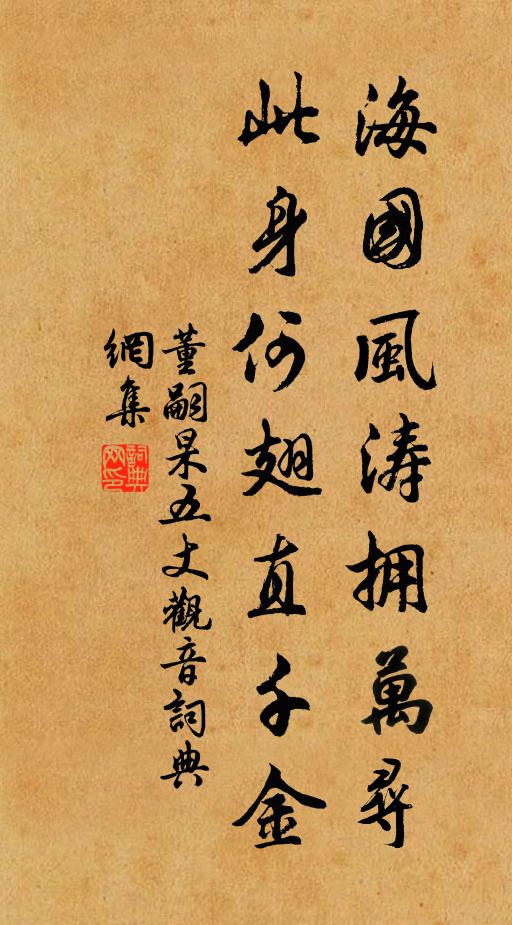 海國風涛拥萬尋
此身何翅直千金
董嗣杲五丈觀音詞典
網集
詞典
网印